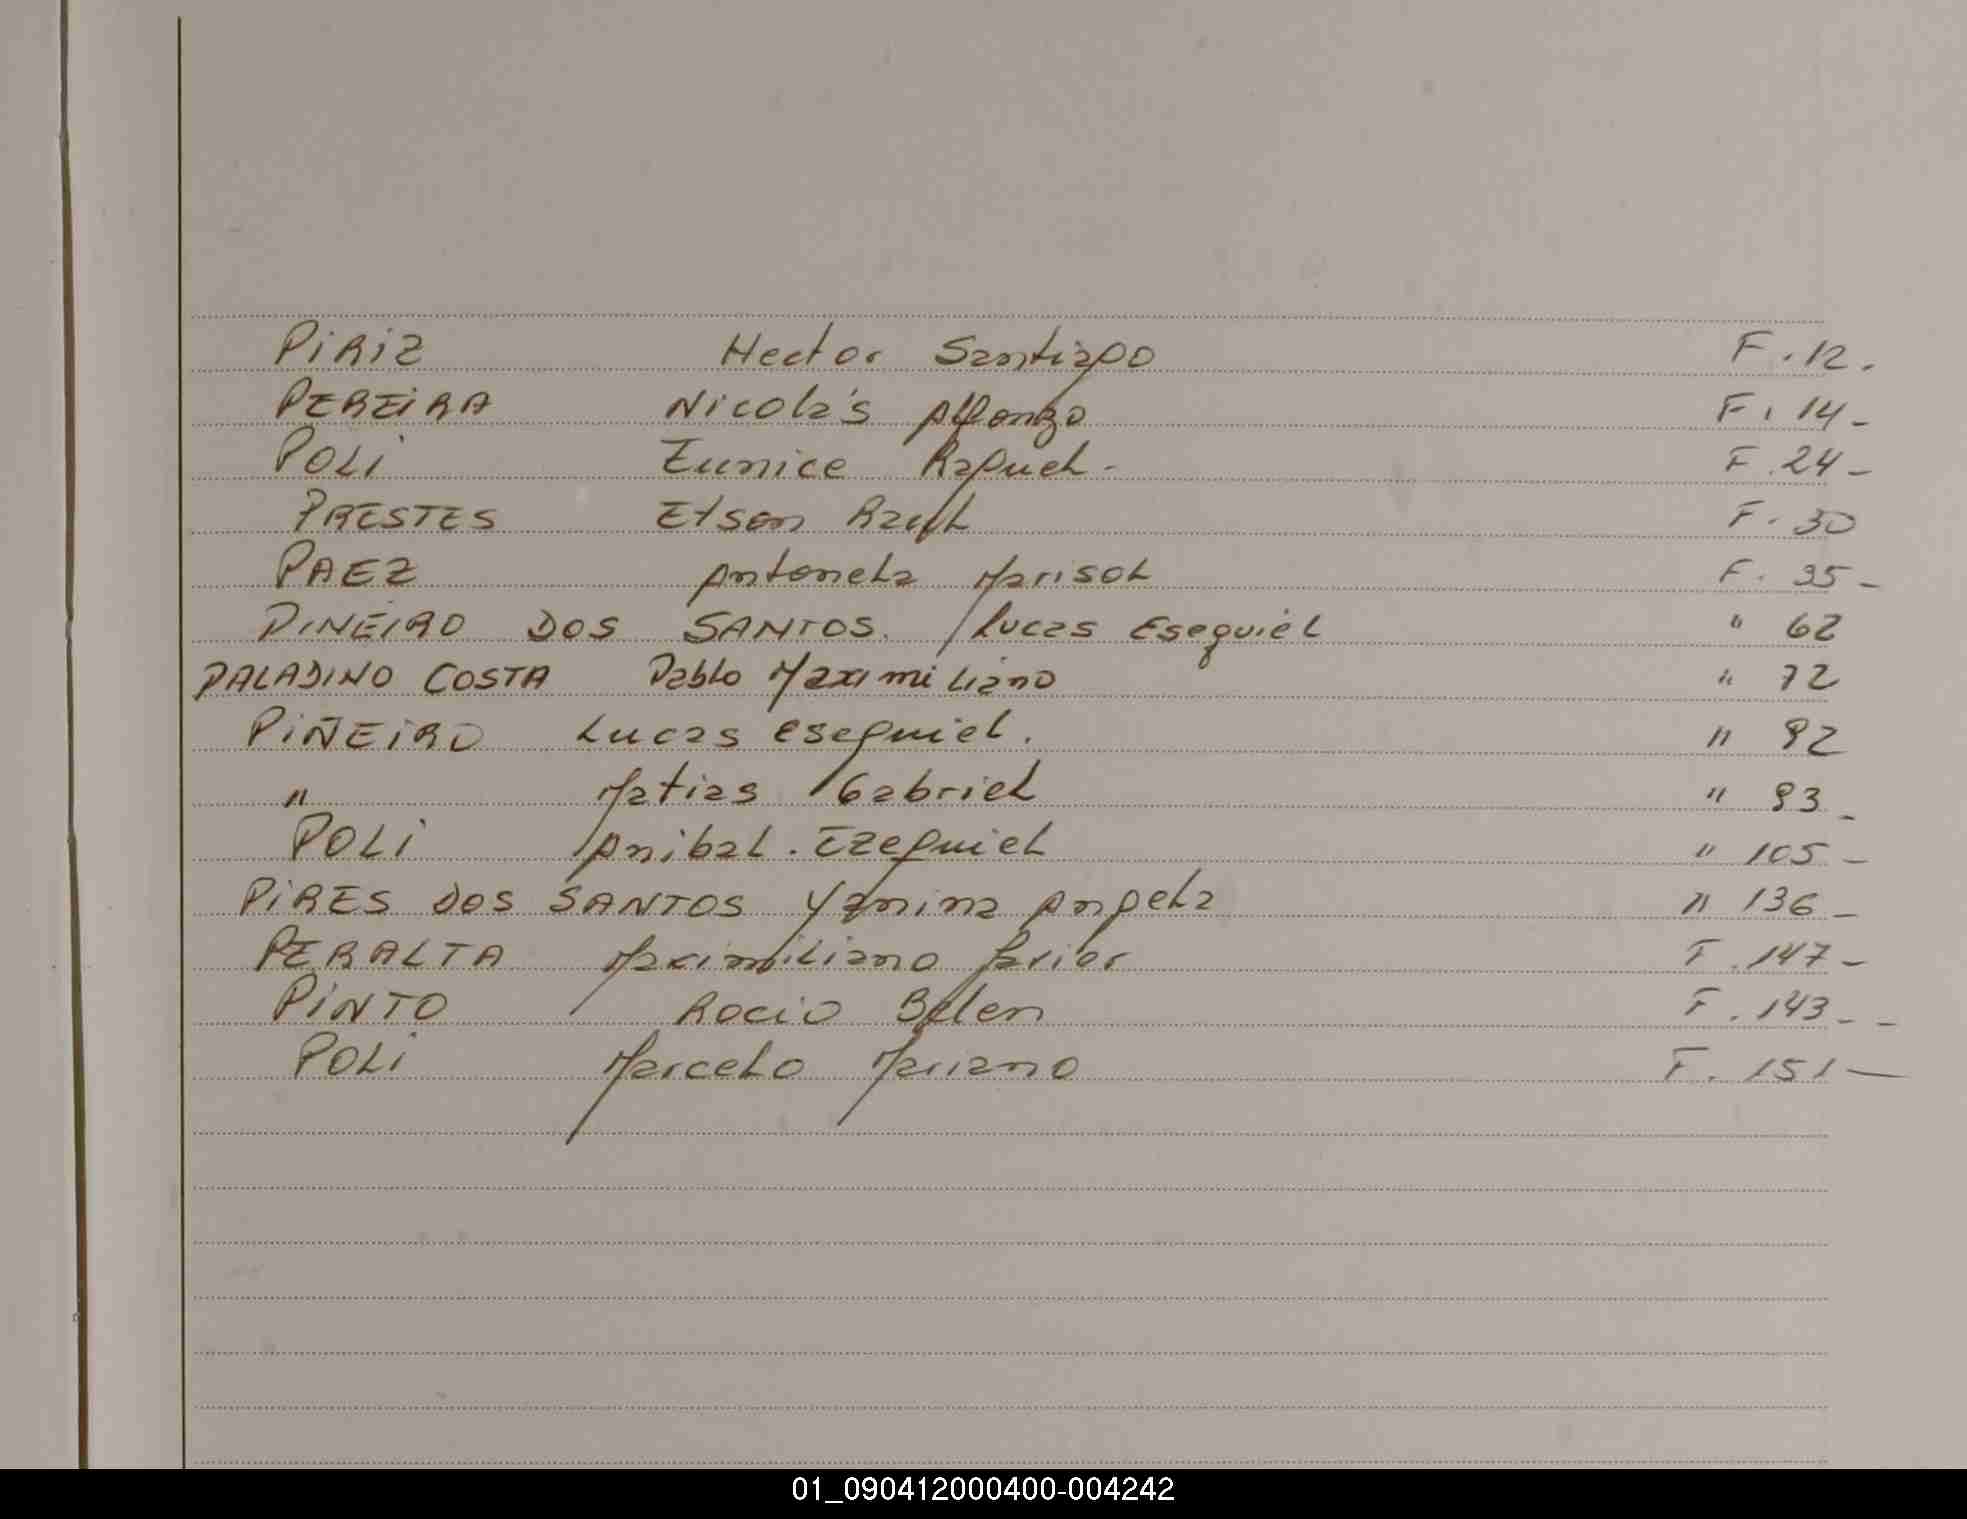 PIRIZ Hector Santiago F. 12.
PEREIRA Nicolás Alfonzo F. 14-
POLI Eunice Raquel- F. 24-
PRESTES Elson Raul F. 30
PAEZ Antonela Marisol F. 35-
PINEIRO DOS SANTOS. Lucas Esequiel " 62
PALADINO COSTA Pablo Maximiliano " 72
PIÑEIRO Lucas esequiel. " 92
" Matias Gabriel " 93-
POLI Anibal. Ezequiel " 105-
PIRES DOS SANTOS Yanina Angela " 136-
PERALTA Maximiliano Javier F. 147-
PINTO Rocio Belen F. 143--
POLI Marcelo Mariano F. 151-
01_090412000400-004242